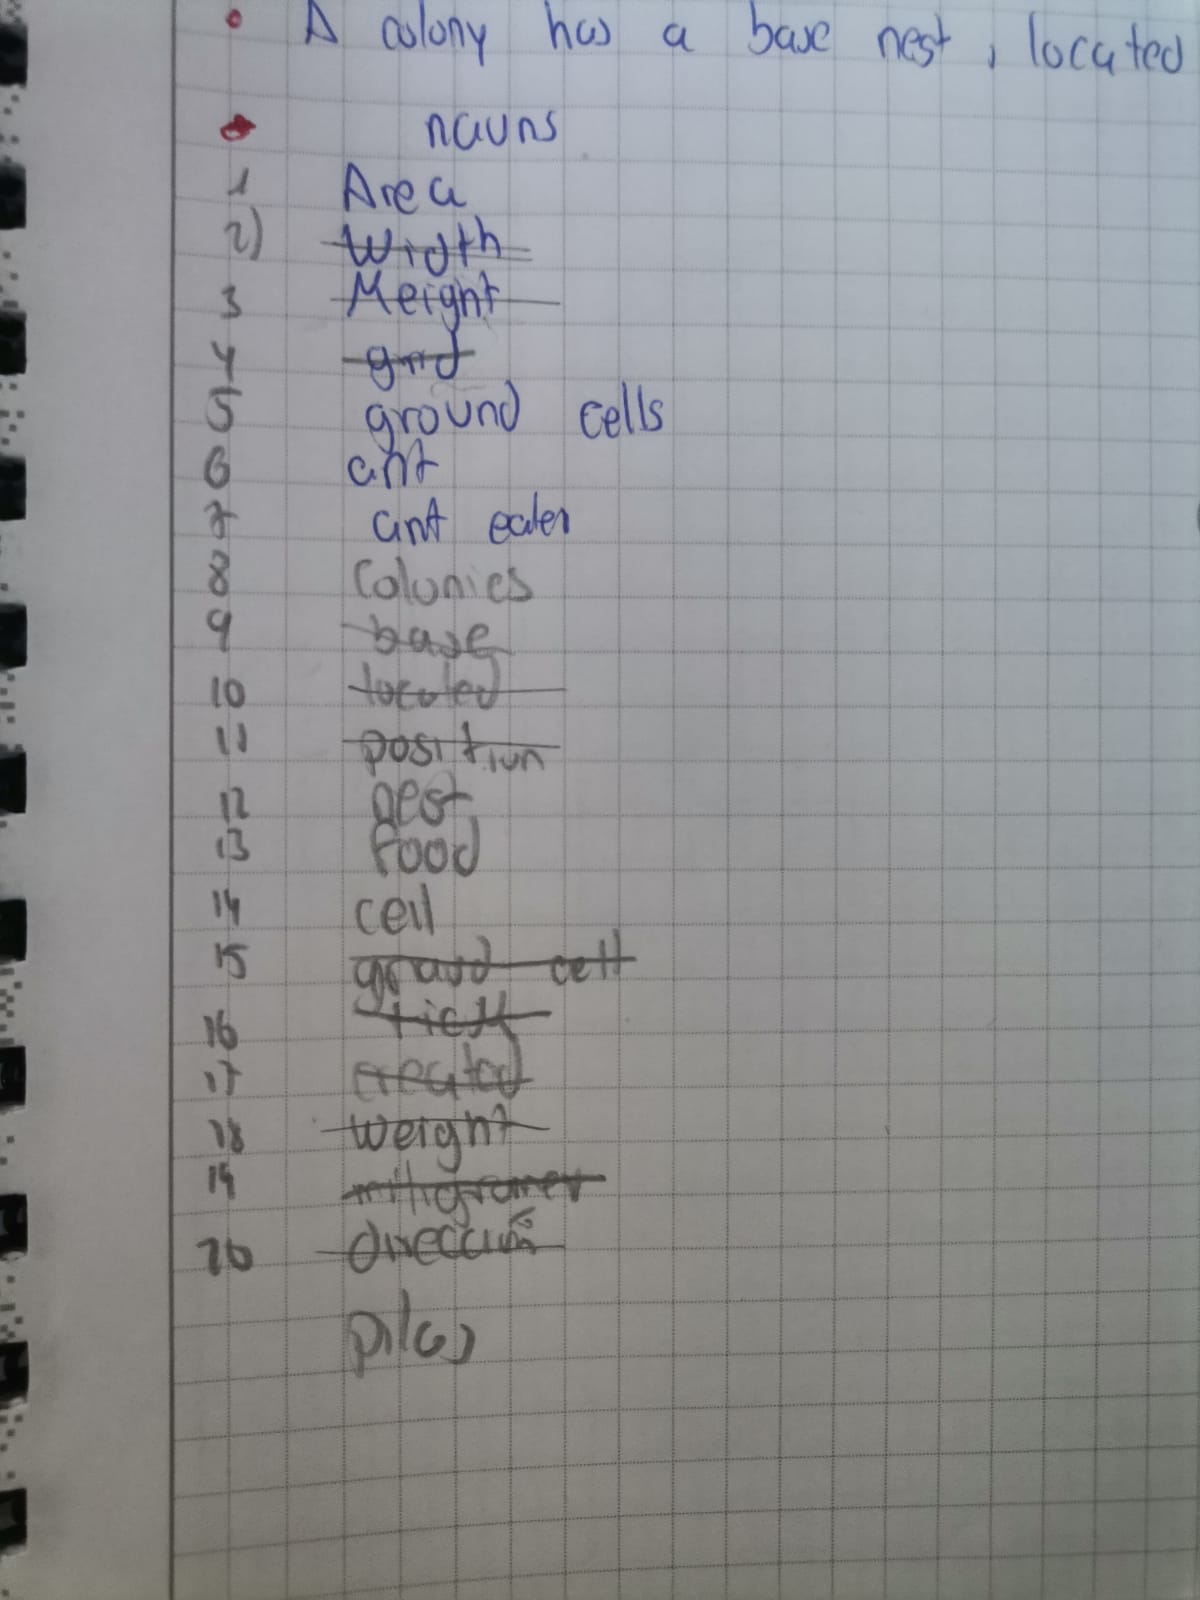 • A colony has a base nest, located
• nauns
1 Area
2) Width
3 Height
4 grid
5 ground cells
6 ant
7 ant eater
8 Colonies
9 base
10 located
11 position
12 nest
13 Food
14 cell
15 graud cell
16 tick
17 created
18 weight
19 milligrames
20 dirección
piles